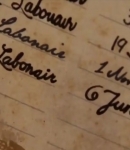 Labouair
Labonair 19
Labonair 1
6 Jun